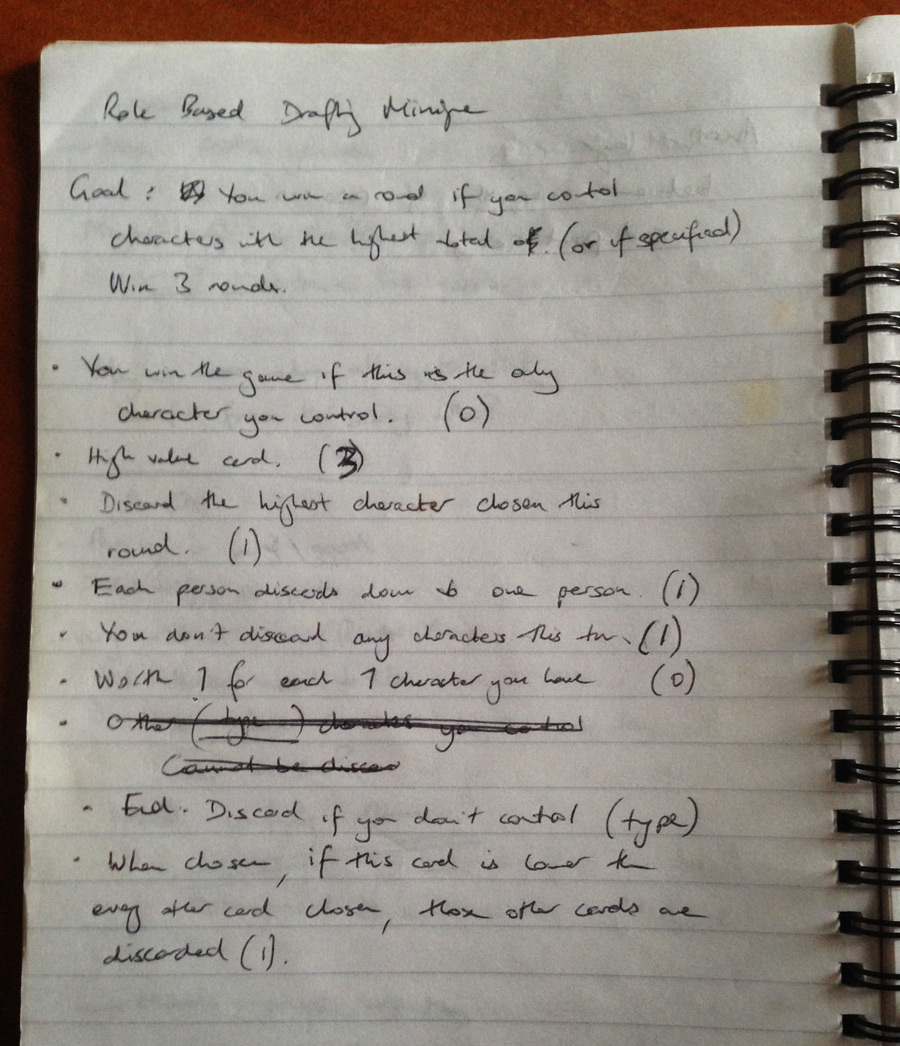 Role Based Drafting Minigame
Goal : You win a round if you control
characters with the highest total. (or if specified)
Win 3 rounds.
· You win the game if this is the only
character you control. (0)
· High value card. (3)
· Discard the highest character chosen this
round. (1)
· Each person discards down to one person. (1)
· You don't discard any characters this turn. (1)
· Worth 1 for each 1 character you have (0)
· Other (type) characters you control
Cannot be discar
· End. Discard if you don't control (type)
· When chosen, if this card is lower than
every other card chosen, those other cards are
discarded (1).